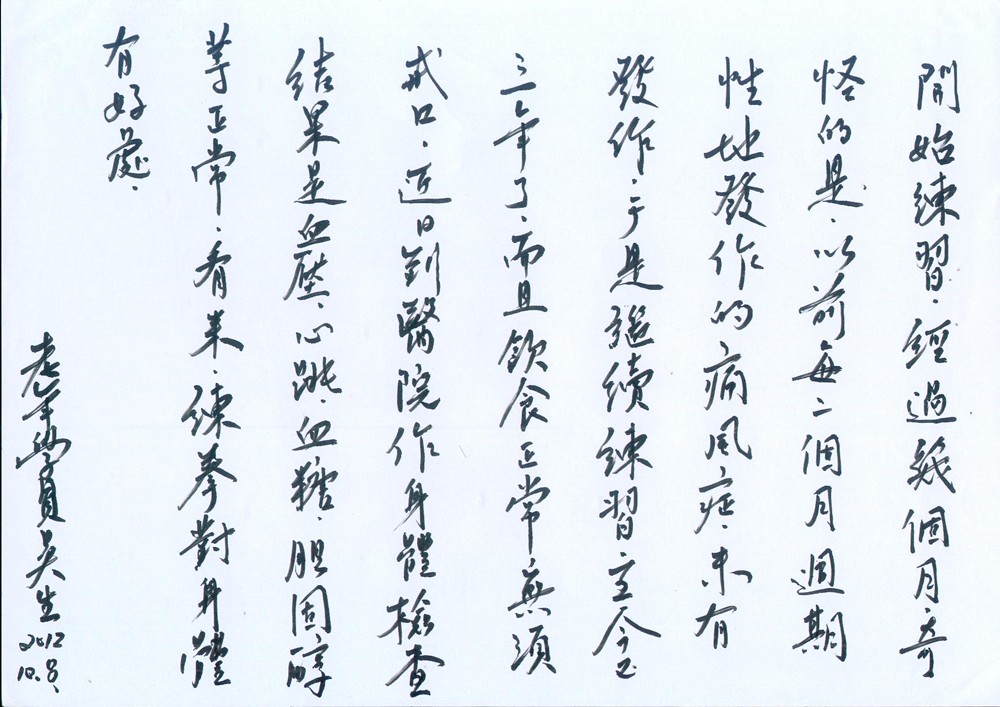 開始練習，經過幾個月，奇
怪的是，以前每二個月週期
性地發作的痛風症，未有
發作，于是繼續練習，至今已
三年了，而且飲食正常，無須
戒口，近日到醫院作身體檢查
結果是血壓、心跳、血糖、胆固醇
等正常，看來，練拳對身體
有好處，
老年學員吳生
2012
10.8、